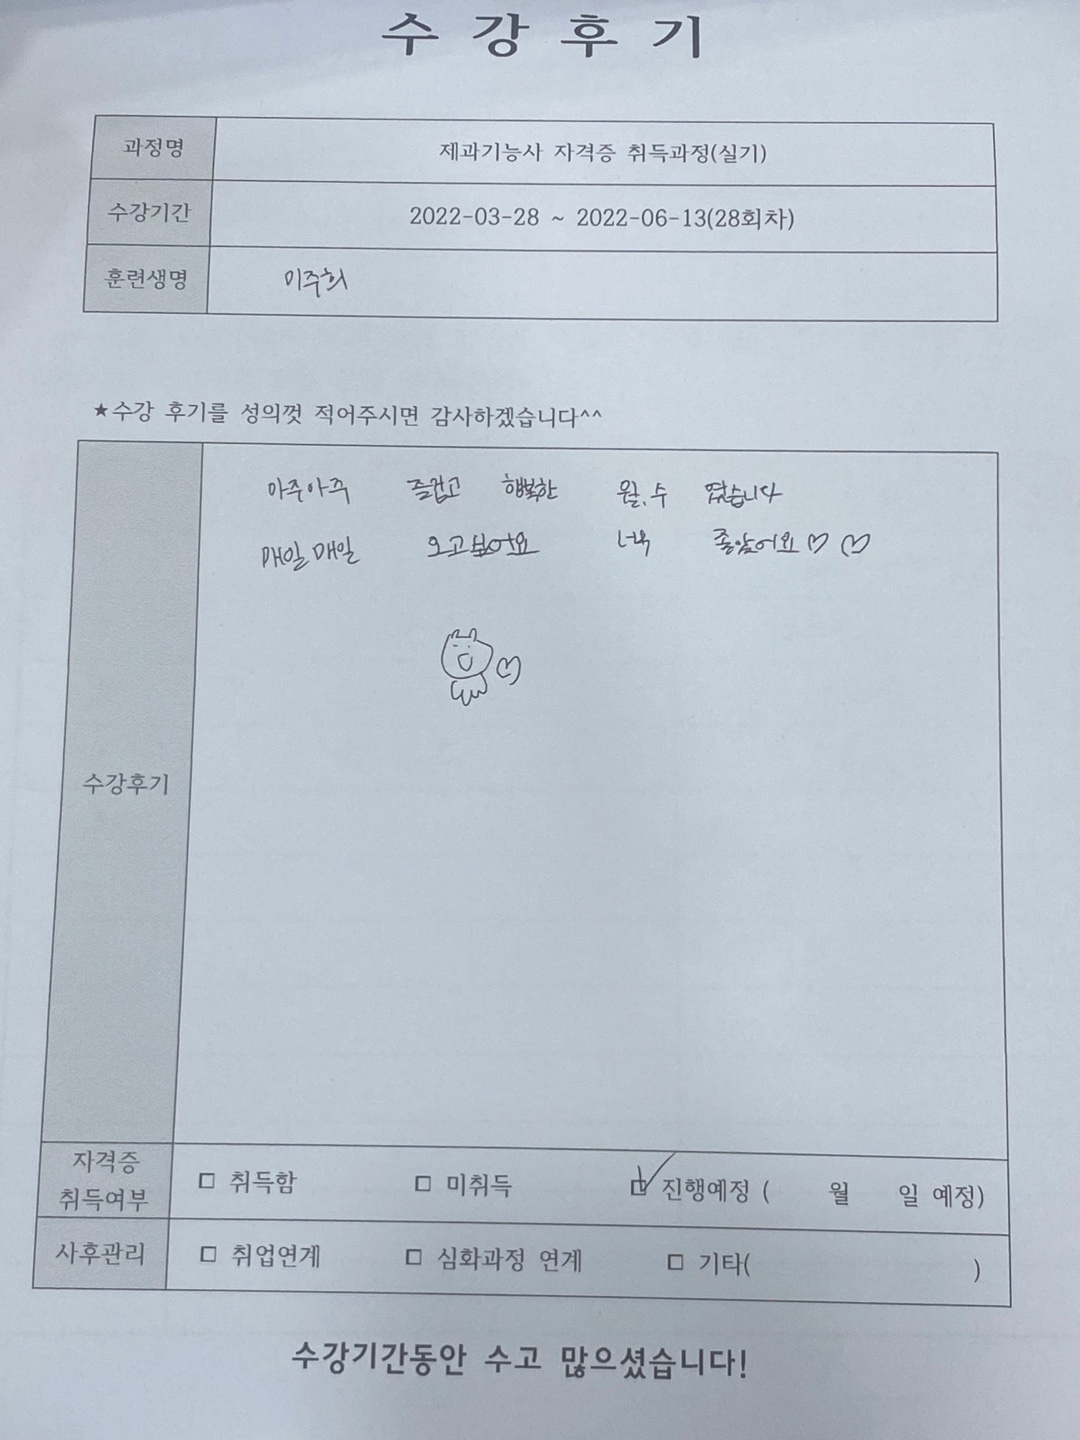 수강후기
과정명 제과기능사 자격증 취득과정(실기)
수강기간 2022-03-28 ~ 2022-06-13(28회차)
훈련생명 이주희
★수강 후기를 성의껏 적어주시면 감사하겠습니다^^
아주아주 즐겁고 행복한 월,수 였습니다
매일매일 오고싶어요 너무 좋았어요♡♡
수강후기
자격증 취득여부 □ 취득함 □ 미취득 ☑ 진행예정 ( 월 일 예정)
사후관리 □ 취업연계 □ 심화과정 연계 □ 기타( )
수강기간동안 수고 많으셨습니다!